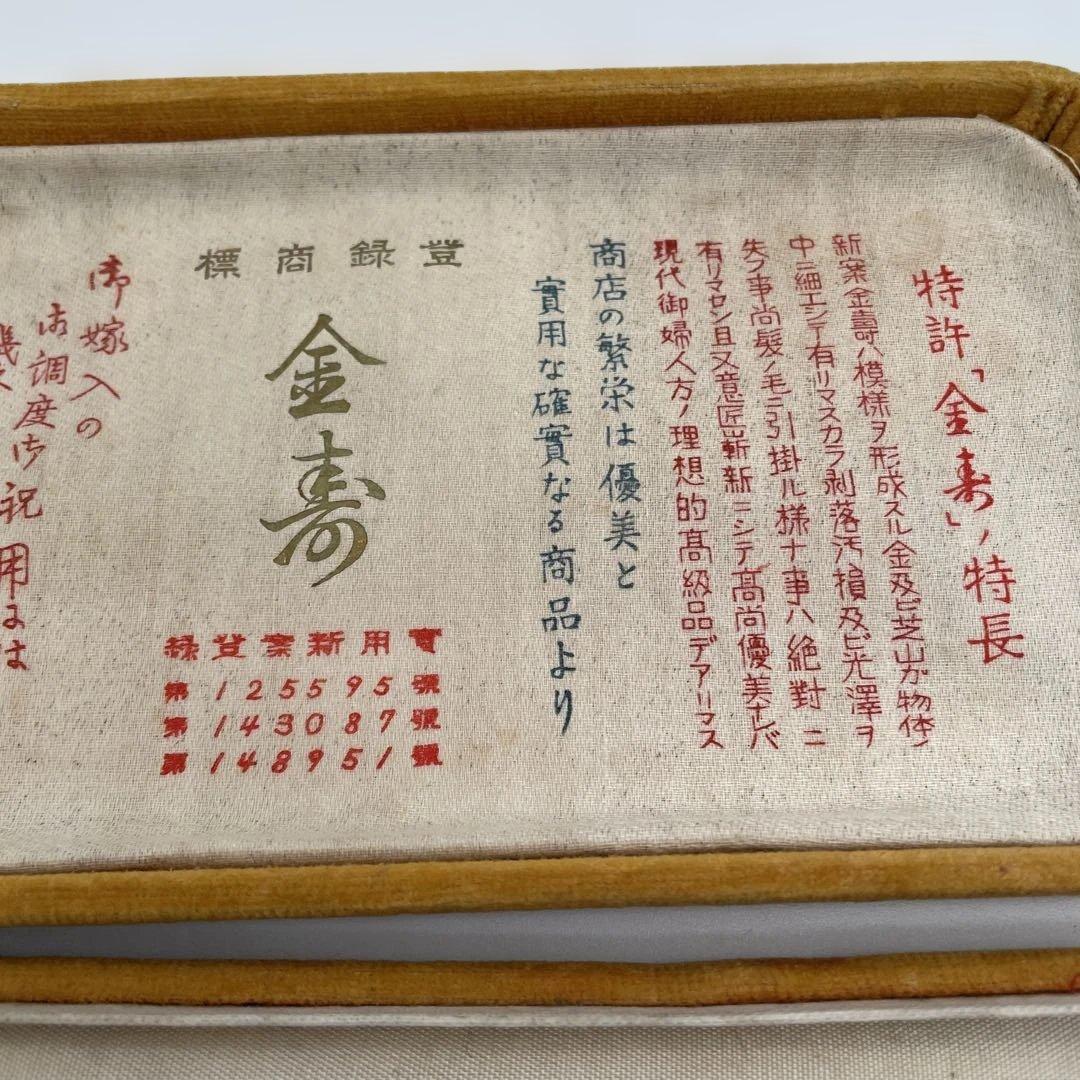 特許「金寿」ノ特長
新案金壽ハ模様ヲ形成スル金及ビ芝山ガ物体ノ
中ニ細工シテ有リマスカラ剥落汚損及ビ光澤ヲ
失フ事尚髪ノ毛ニ引掛ル様ナ事ハ絶對ニ
有リマセン且又意匠嶄新ニシテ高尚優美ナレバ
現代御婦人方ノ理想的高級品デアリマス
商店の繁栄は優美と
實用な確實なる商品より
標商録登
金寿
録登案新用實
第125595號
第143087號
第148951號
御嫁入の
御調度御祝
用には